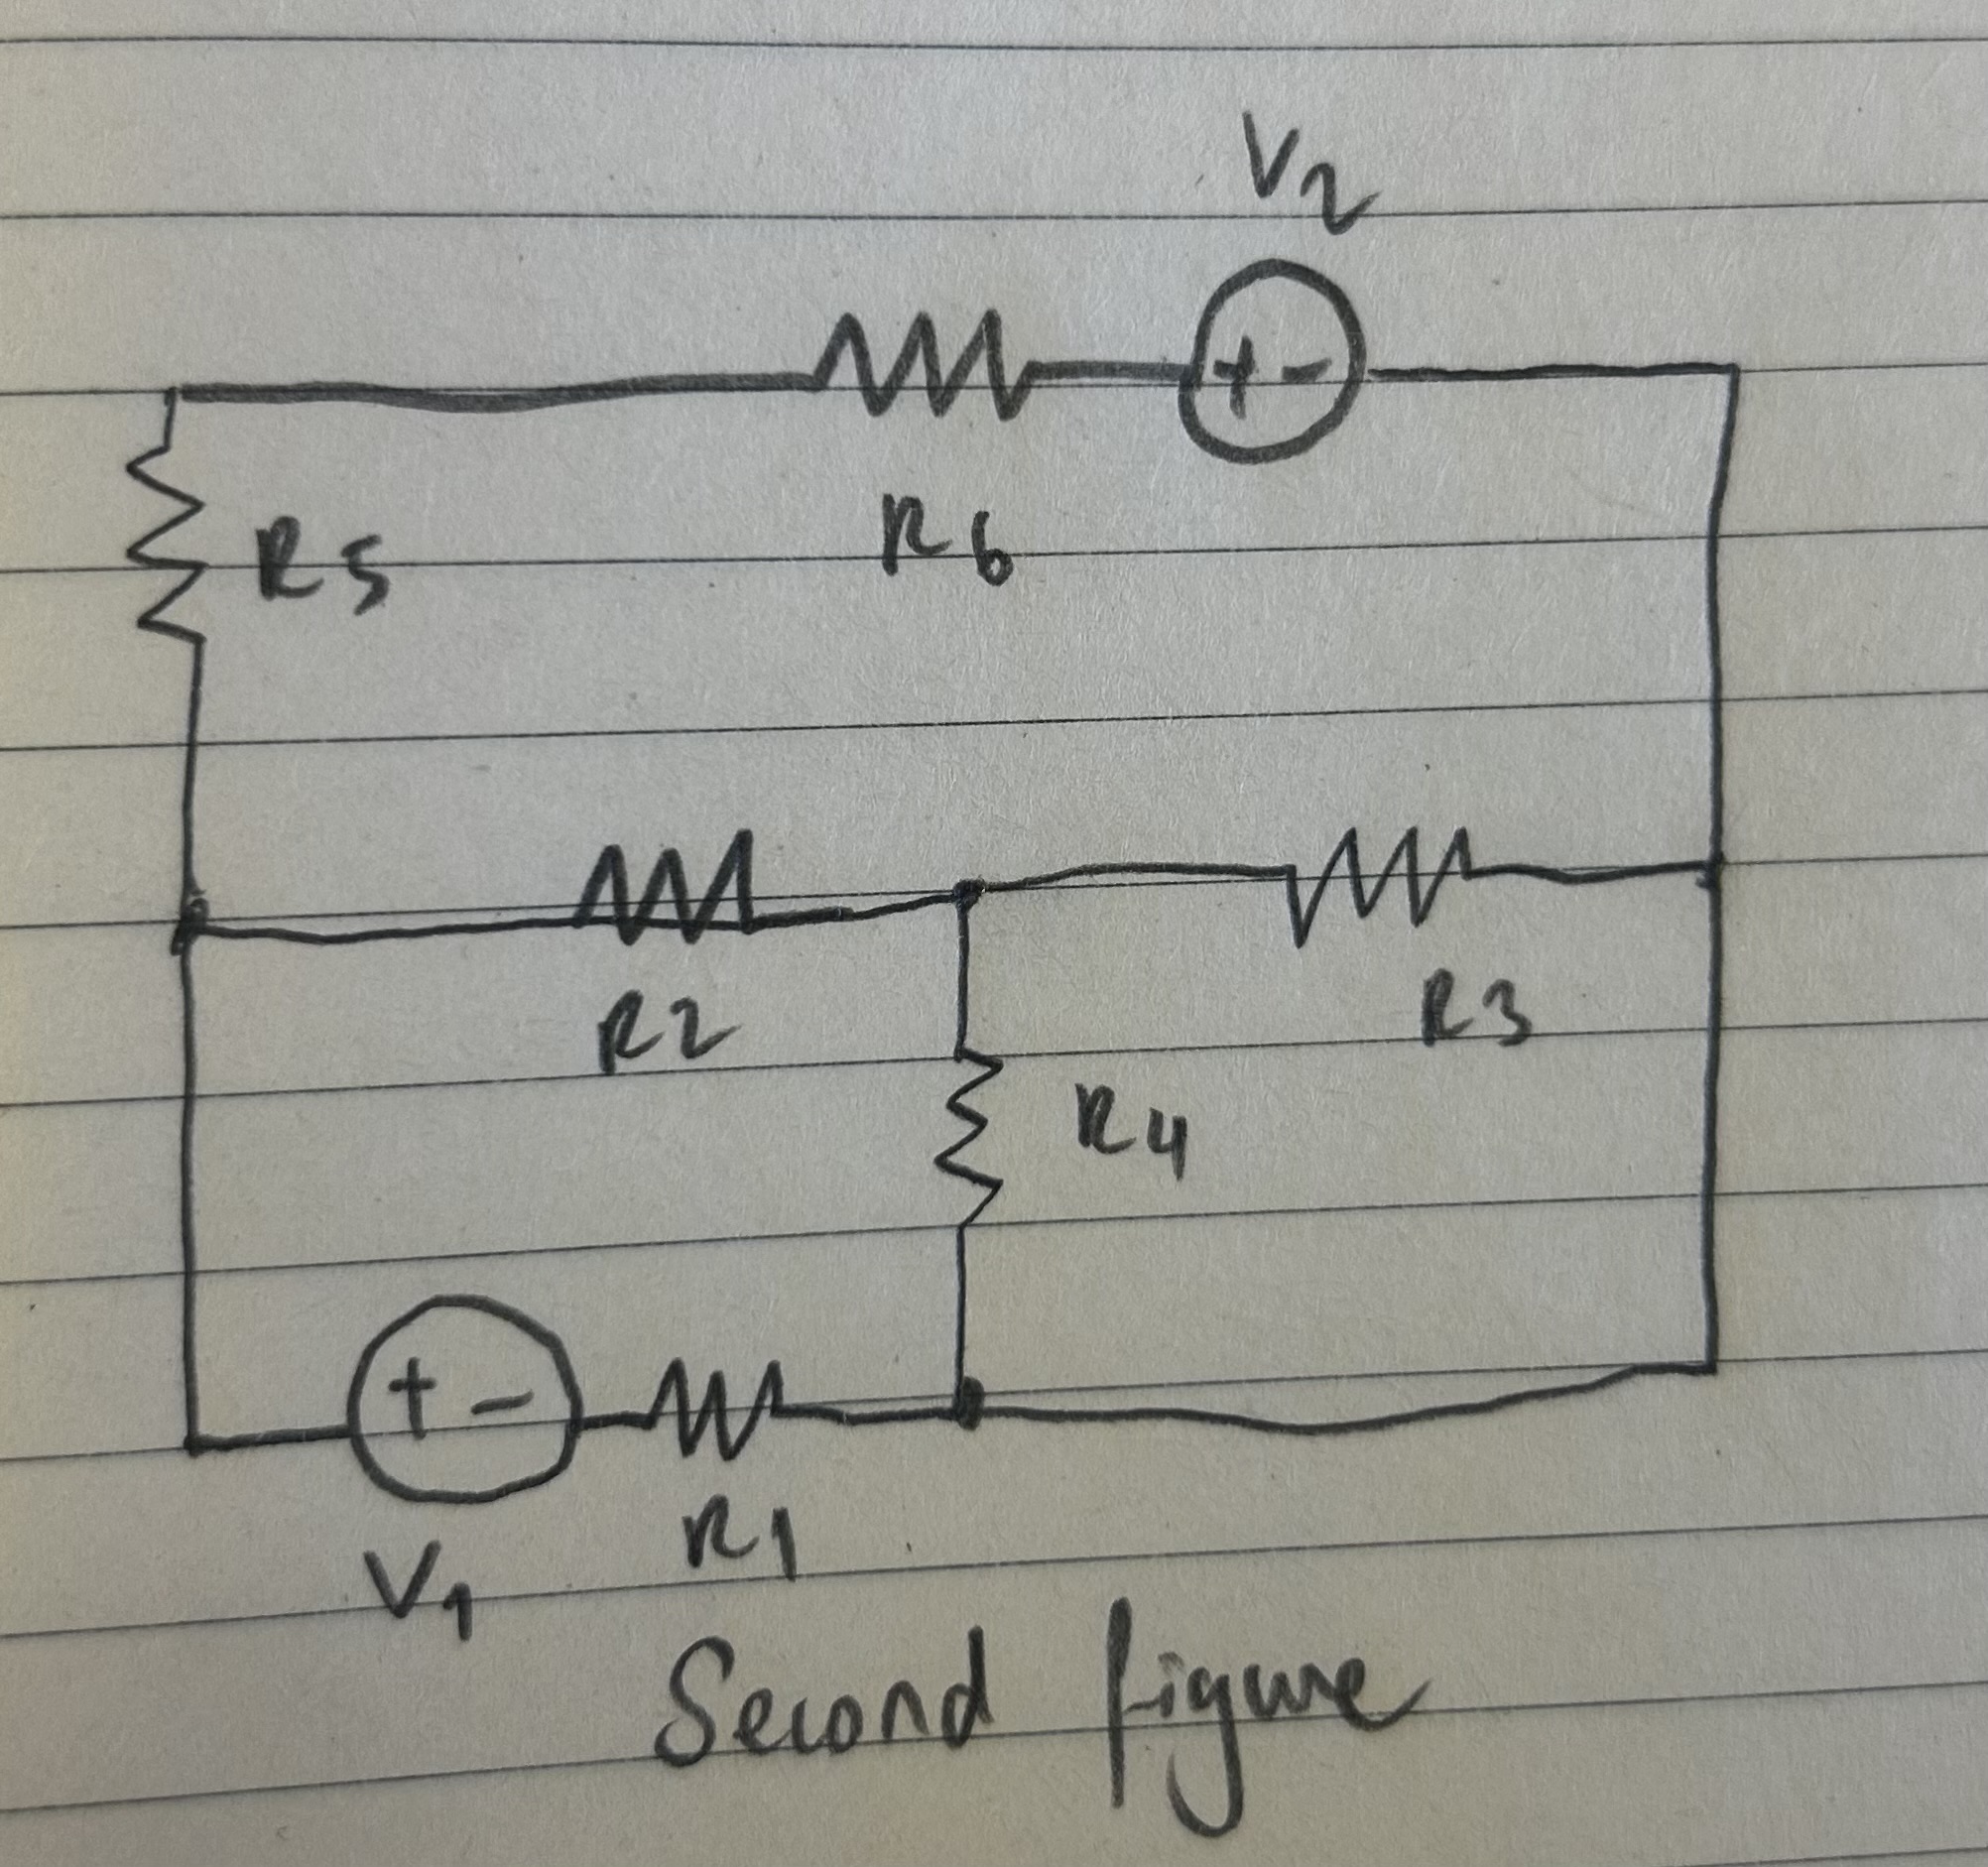 V2
+ -
R6
R5
R2
R3
R4
+ -
R1
V1
Second figure